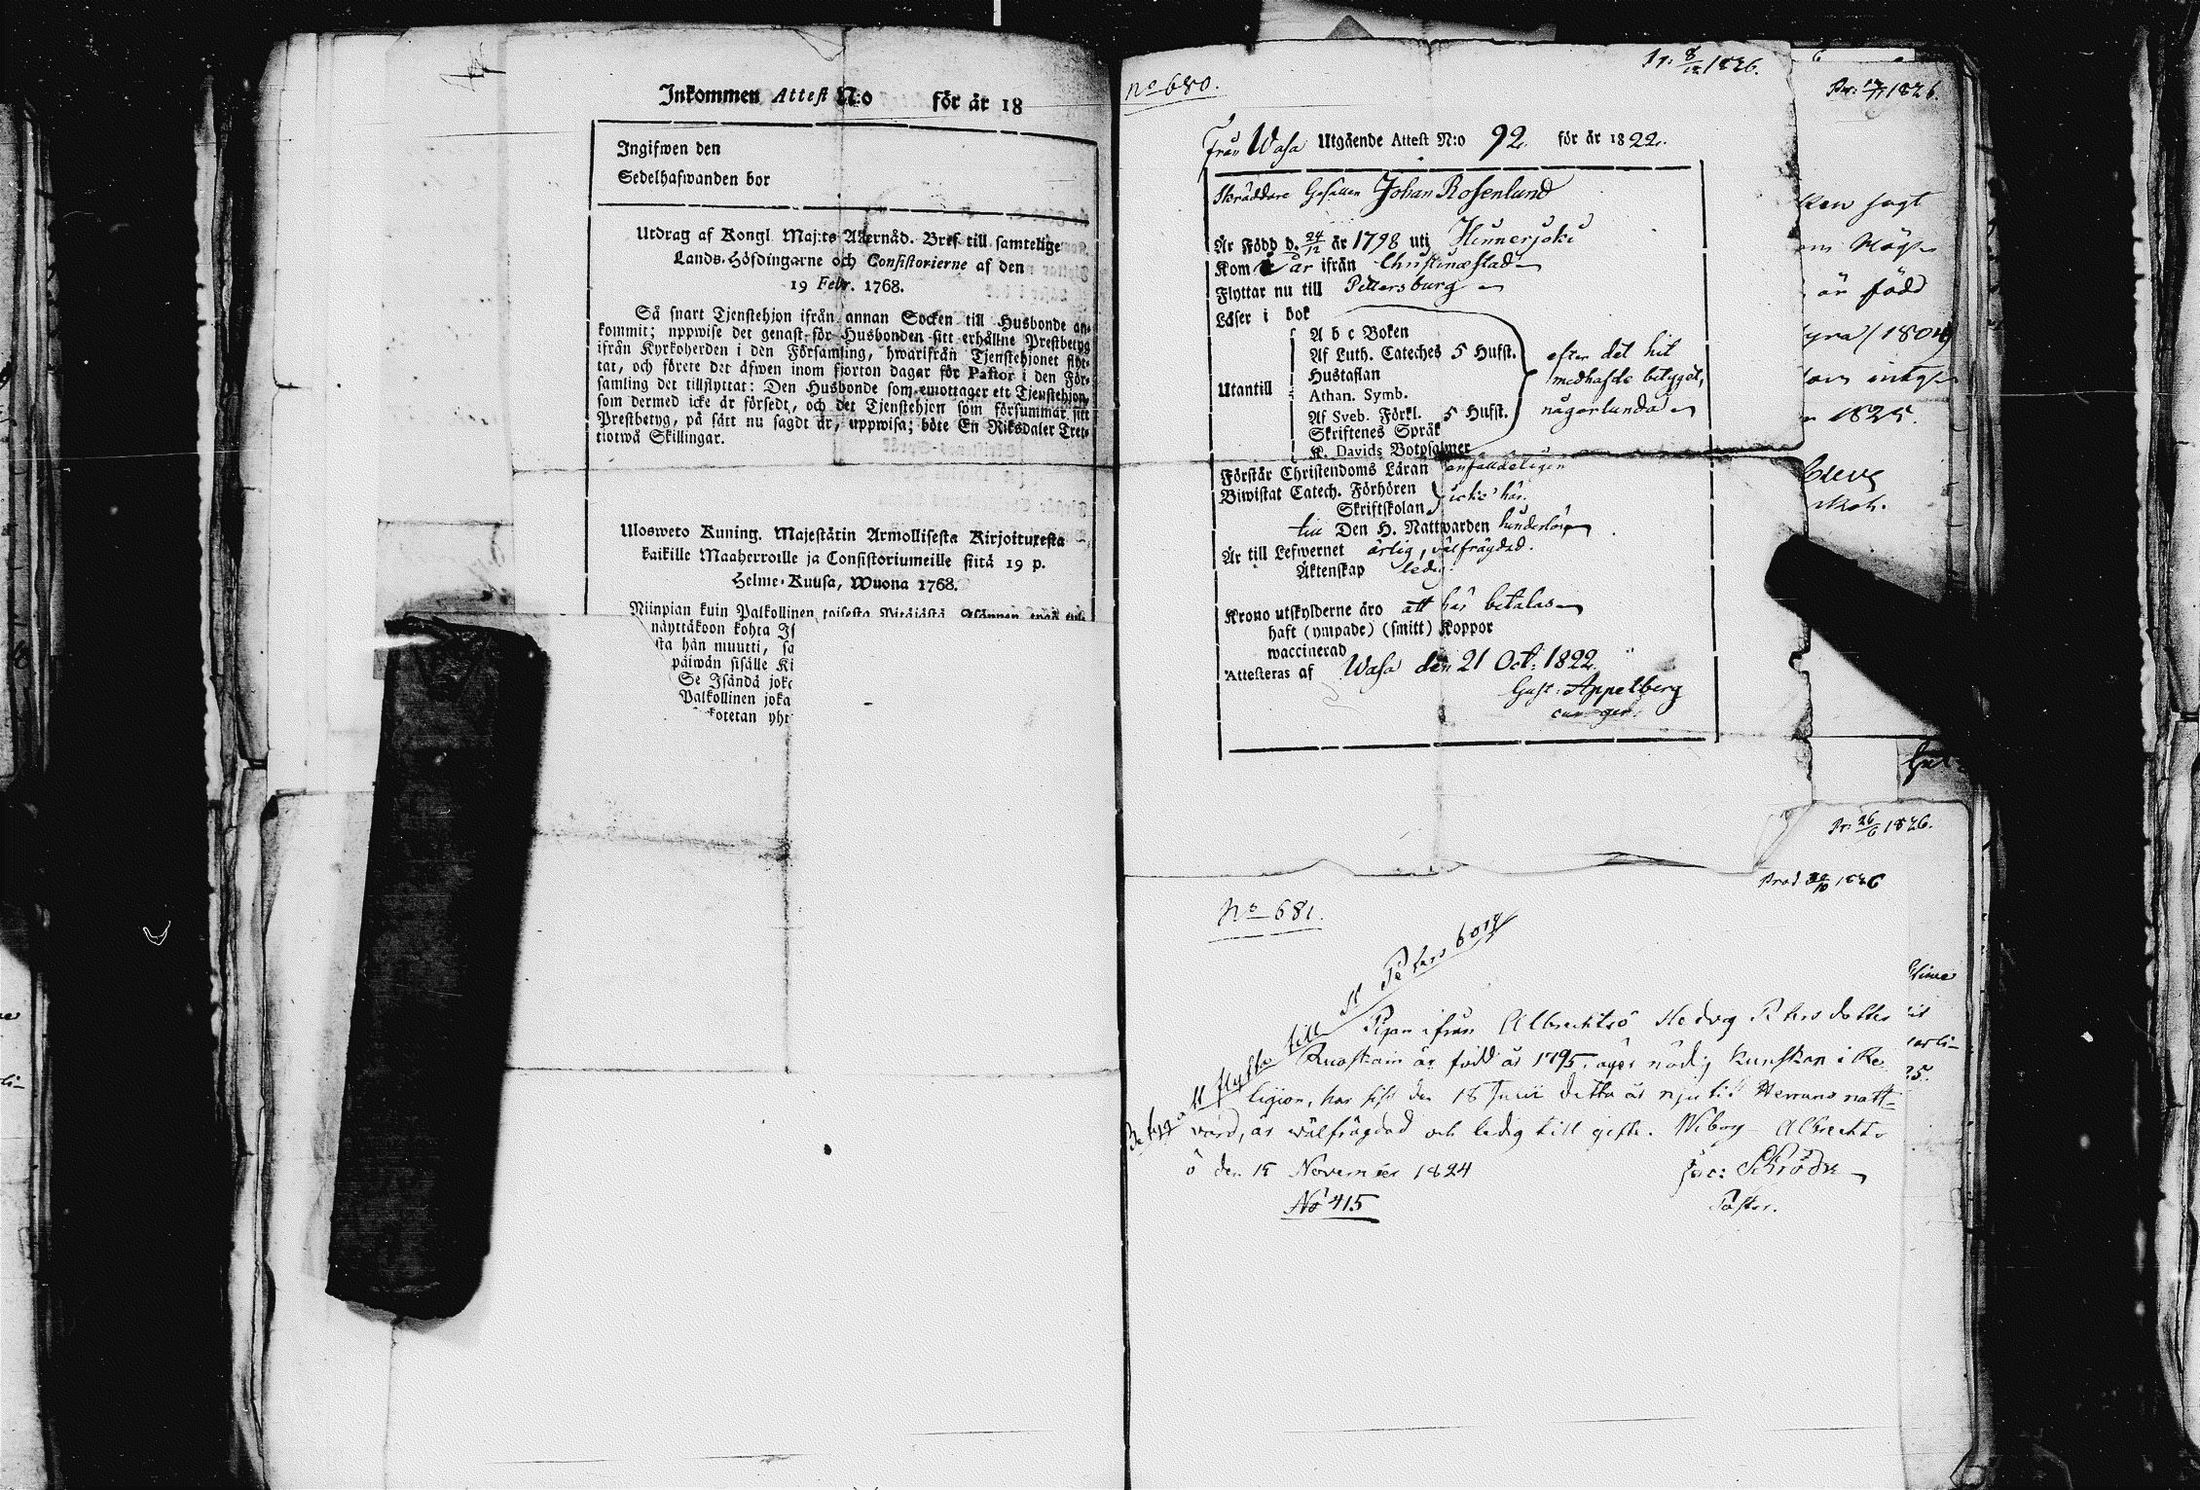 Inkommen Attest N:o för år 18
Ingifwen den
Sedelhafwanden bor
Utdrag af Kongl. Maj:ts Allernåd. Bref till samtelige
Lands-Höfdingarne och Consistorierne af den
19 Febr. 1768.
Så snart Tjenstehjon ifrån annan Socken till Husbonde an-
kommit; uppwise det genast för Husbonden sitt erhållne Prestbetyg
ifrån Kyrkoherden i den Församling, hwarifrån Tjenstehjonet flyt-
tat, och förete det äfwen inom fjorton dagar för Pastor i den För-
samling det tillflyttat: Den Husbonde som emottager ett Tjenstehjon,
som dermed icke är försedt, och det Tjenstehjon som försummar sitt
Prestbetyg, på sätt nu sagdt är, uppwisa; böte En Riksdaler Tret-
tiotwå Skillingar.
Ulosweto Kuning. Majestätin Armollisesta Kirjoituxesta
kaikille Maaherroille ja Consistoriumeille siitä 19 p.
Helme-Kuusa, Wuona 1768.
Niinpian kuin Palkollinen toisesta Pitäjästä Isännen tygö tul-
näyttäkoon kohta Is
sta hän muutti, sa
päiwän sisälle Ki
Se Isändä joko
Palkollinen joka
kotetan yht
No 680.
Pr. 8/12 1826.
Från Wasa Utgående Attest N:o 92 för år 1822.
Skräddare Gesällen Johan Rosenlund
Är Född d. 24/12 år 1798 uti Hinnerjoki
Kom i år ifrån Christinæstad
Flyttar nu till Pettersburg
Läser i bok
A b c Boken
Af Luth. Cateches 5 Hufst.
Hustaflan
Utantill
Athan. Symb.
Af Sveb. Förkl. 5 Hufst.
Skriftenes Språk
K. Davids Botpsalmer
efter det hit
medhafde betyget,
någorlunda
Förstår Christendoms Läran enfaldeligen
Biwistat Catech. Förhören
Skriftskolan
icke här.
till Den H. Nattwarden
Är till Lefwernet ärlig, välfrägdad.
Äktenskap ledig
Krono utskylderne äro att här betalas
haft (ympade) (smitt) Koppor
waccinerad
Attesteras af Wasa den 21 Oct: 1822.
Gust: Appelberg
Pr: 1826.
är född
1825.
Pr: 26/6 1826.
Prod 1826
No 681.
Betyg att flytta till St Petersborg
Pigan ifrån Albrechtsö Hedvig Petersdotter
Ruoskain är född år 1795, äger nödig kunskap i Re-
ligion, har sist den 18 Junii detta år njutit Herrans natt-
vard, är wälfrägdad och ledig till gifte. Wiborg Albrechts-
ö den 15 November 1824
Jac: Schröder
Pastor.
No 415